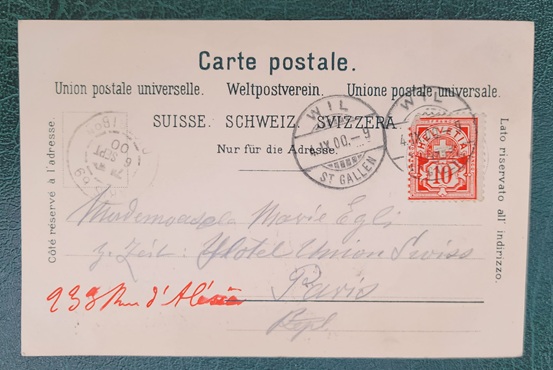 Carte postale.
Union postale universelle. Weltpostverein. Unione postale universale.
SUISSE. SCHWEIZ. SVIZZERA.
Nur für die Adresse.
Côté réservé à l'adresse.
Lato riservato all' indirizzo.
WIL
4.IX.00. 9
ST GALLEN
WIL
4.IX
HELVETIA
10
SEPT
00
Mademoiselle Marie Egli
z. Zeit: Hotel Union Swiss
Paris
233 Rue d'Alésia